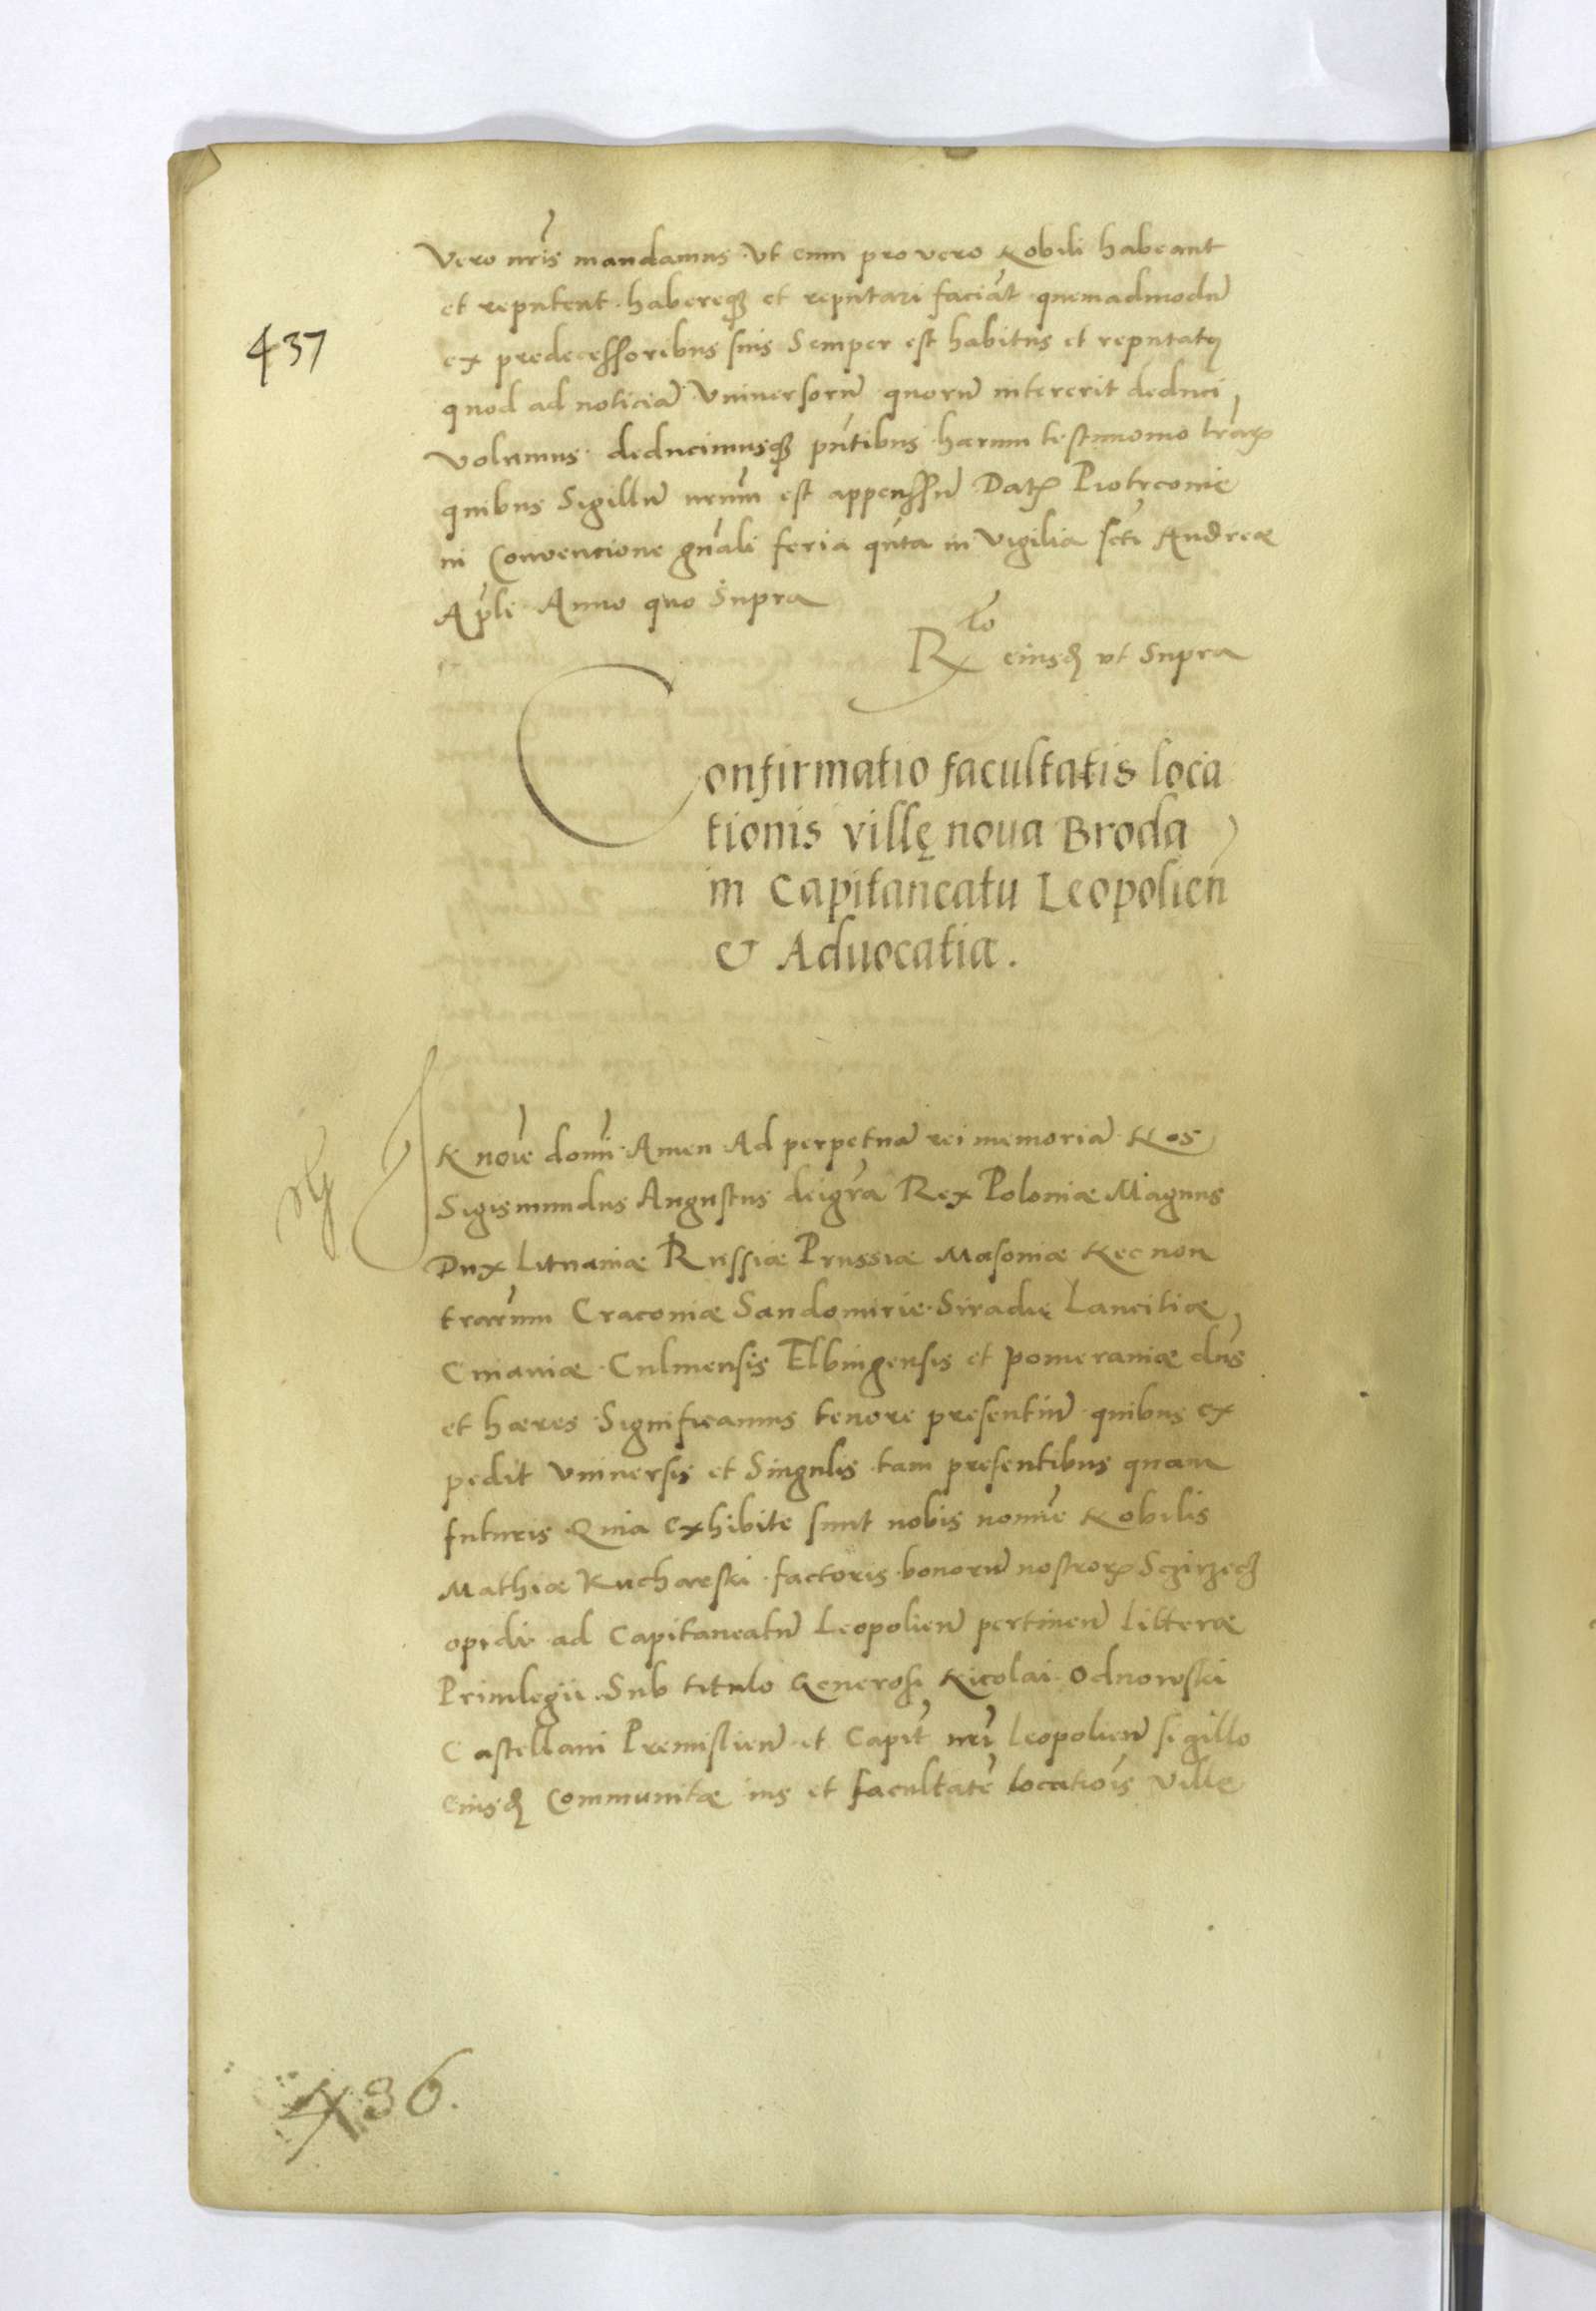 Vero nr̃is mandamus. Vt eum pro vero Nobili habeant
et reputent. habereqꝫ et reputari faciãt quemadmodũ
437
ex predecessoribus suis Semper est habitus et reputatꝰ
quod ad noticiã Vniuersorũ quorũ intererit deduci
volumus. deducimusqꝫ pñtibus harum testimonio lrãꝝ
quibus Sigillũ nr̃um est appenssũ Datꝝ Piotrconie
in Conuencione gñali feria qũta in Vigilia scti Andreæ
Apl̃i Anno quo Supra
Rᵗᵒ eiusdꝫ vt Supra
Confirmatio facultatis loca
tionis villę noua Broda
in Capitaneatu Leopolien̄
& Aduocatia.
IN noı̃e domı̃ Amen Ad perpetuã rei memoriã Nos
Sigismundus Augustus dei gr̃a Rex Poloniæ Magnus
Dux Lituaniæ Russiæ Prussiæ Masouiæ Necnon
trarũm Cracouiæ Sandomirie Siradię Lancitiæ
Cuiauiæ. Culmensis Elbingensis et pomeraniæ dñs
et hæres Significamus tenore presentiũ quibus ex
pedit Vniuersis et Singulis tam presentibus quam
futuris Quia exhibite sunt nobis nomı̃e Nobilis
Mathiæ Kucharski factoris bonorũ nostroꝝ Sczirzecz
opidi ad Capitaneatũ Leopolien̄ pertinen̄ litteræ
Priuilegii Sub titulo Generosi Nicolai Odnowski
Castellani Premislien̄ et Capit̃ nr̃i Leopolien̄ sigillo
eiusdꝫ Communitæ ius et facultatẽ locatiõis Ville
436.